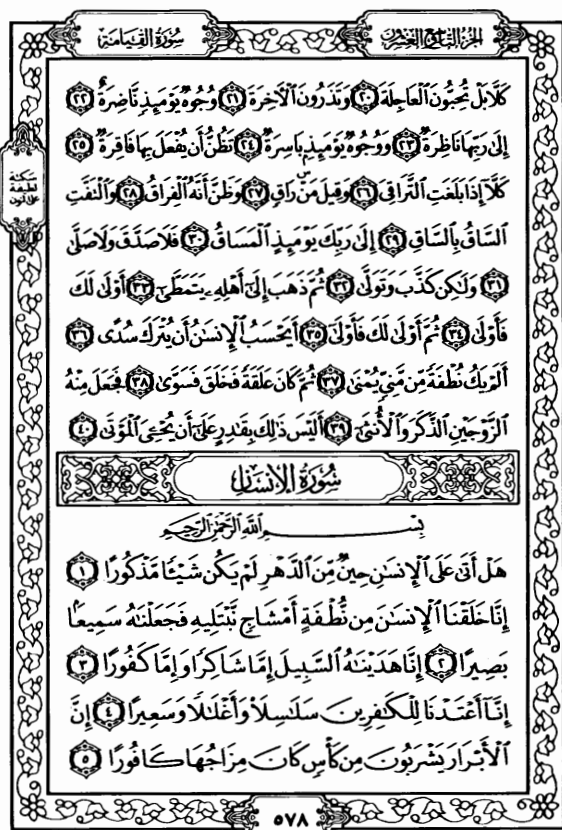 الجزء التاسع والعشرون
سُورَةُ القِيَامَة
كَلَّا بَلْ تُحِبُّونَ ٱلْعَاجِلَةَ ۝٢٠ وَتَذَرُونَ ٱلْأَخِرَةَ ۝٢١ وُجُوهٌ يَوْمَئِذٍ نَّاضِرَةٌ ۝٢٢
إِلَىٰ رَبِّهَا نَاظِرَةٌ ۝٢٣ وَوُجُوهٌ يَوْمَئِذٍ بَاسِرَةٌ ۝٢٤ تَظُنُّ أَن يُفْعَلَ بِهَا فَاقِرَةٌ ۝٢٥
سكتة
لطيفة
على النون
كَلَّآ إِذَا بَلَغَتِ ٱلتَّرَاقِىَ ۝٢٦ وَقِيلَ مَنْۜ رَاقٍ ۝٢٧ وَظَنَّ أَنَّهُ ٱلْفِرَاقُ ۝٢٨ وَٱلْتَفَّتِ
ٱلسَّاقُ بِٱلسَّاقِ ۝٢٩ إِلَىٰ رَبِّكَ يَوْمَئِذٍ ٱلْمَسَاقُ ۝٣٠ فَلَا صَدَّقَ وَلَا صَلَّىٰ
۝٣١ وَلَٰكِن كَذَّبَ وَتَوَلَّىٰ ۝٣٢ ثُمَّ ذَهَبَ إِلَىٰٓ أَهْلِهِۦ يَتَمَطَّىٰٓ ۝٣٣ أَوْلَىٰ لَكَ
فَأَوْلَىٰ ۝٣٤ ثُمَّ أَوْلَىٰ لَكَ فَأَوْلَىٰٓ ۝٣٥ أَيَحْسَبُ ٱلْإِنسَٰنُ أَن يُتْرَكَ سُدًى ۝٣٦
أَلَمْ يَكُ نُطْفَةً مِّن مَّنِىٍّ يُمْنَىٰ ۝٣٧ ثُمَّ كَانَ عَلَقَةً فَخَلَقَ فَسَوَّىٰ ۝٣٨ فَجَعَلَ مِنْهُ
ٱلزَّوْجَيْنِ ٱلذَّكَرَ وَٱلْأُنثَىٰٓ ۝٣٩ أَلَيْسَ ذَٰلِكَ بِقَٰدِرٍ عَلَىٰٓ أَن يُحْۦِىَ ٱلْمَوْتَىٰ ۝٤٠
سُورَةُ الإِنسَانِ
بِسْمِ ٱللَّهِ ٱلرَّحْمَٰنِ ٱلرَّحِيمِ
هَلْ أَتَىٰ عَلَى ٱلْإِنسَٰنِ حِينٌ مِّنَ ٱلدَّهْرِ لَمْ يَكُن شَيْـًٔا مَّذْكُورًا ۝١
إِنَّا خَلَقْنَا ٱلْإِنسَٰنَ مِن نُّطْفَةٍ أَمْشَاجٍ نَّبْتَلِيهِ فَجَعَلْنَٰهُ سَمِيعًۢا
بَصِيرًا ۝٢ إِنَّا هَدَيْنَٰهُ ٱلسَّبِيلَ إِمَّا شَاكِرًا وَإِمَّا كَفُورًا ۝٣
إِنَّآ أَعْتَدْنَا لِلْكَٰفِرِينَ سَلَٰسِلَا۟ وَأَغْلَٰلًا وَسَعِيرًا ۝٤ إِنَّ
ٱلْأَبْرَارَ يَشْرَبُونَ مِن كَأْسٍ كَانَ مِزَاجُهَا كَافُورًا ۝٥
٥٧٨